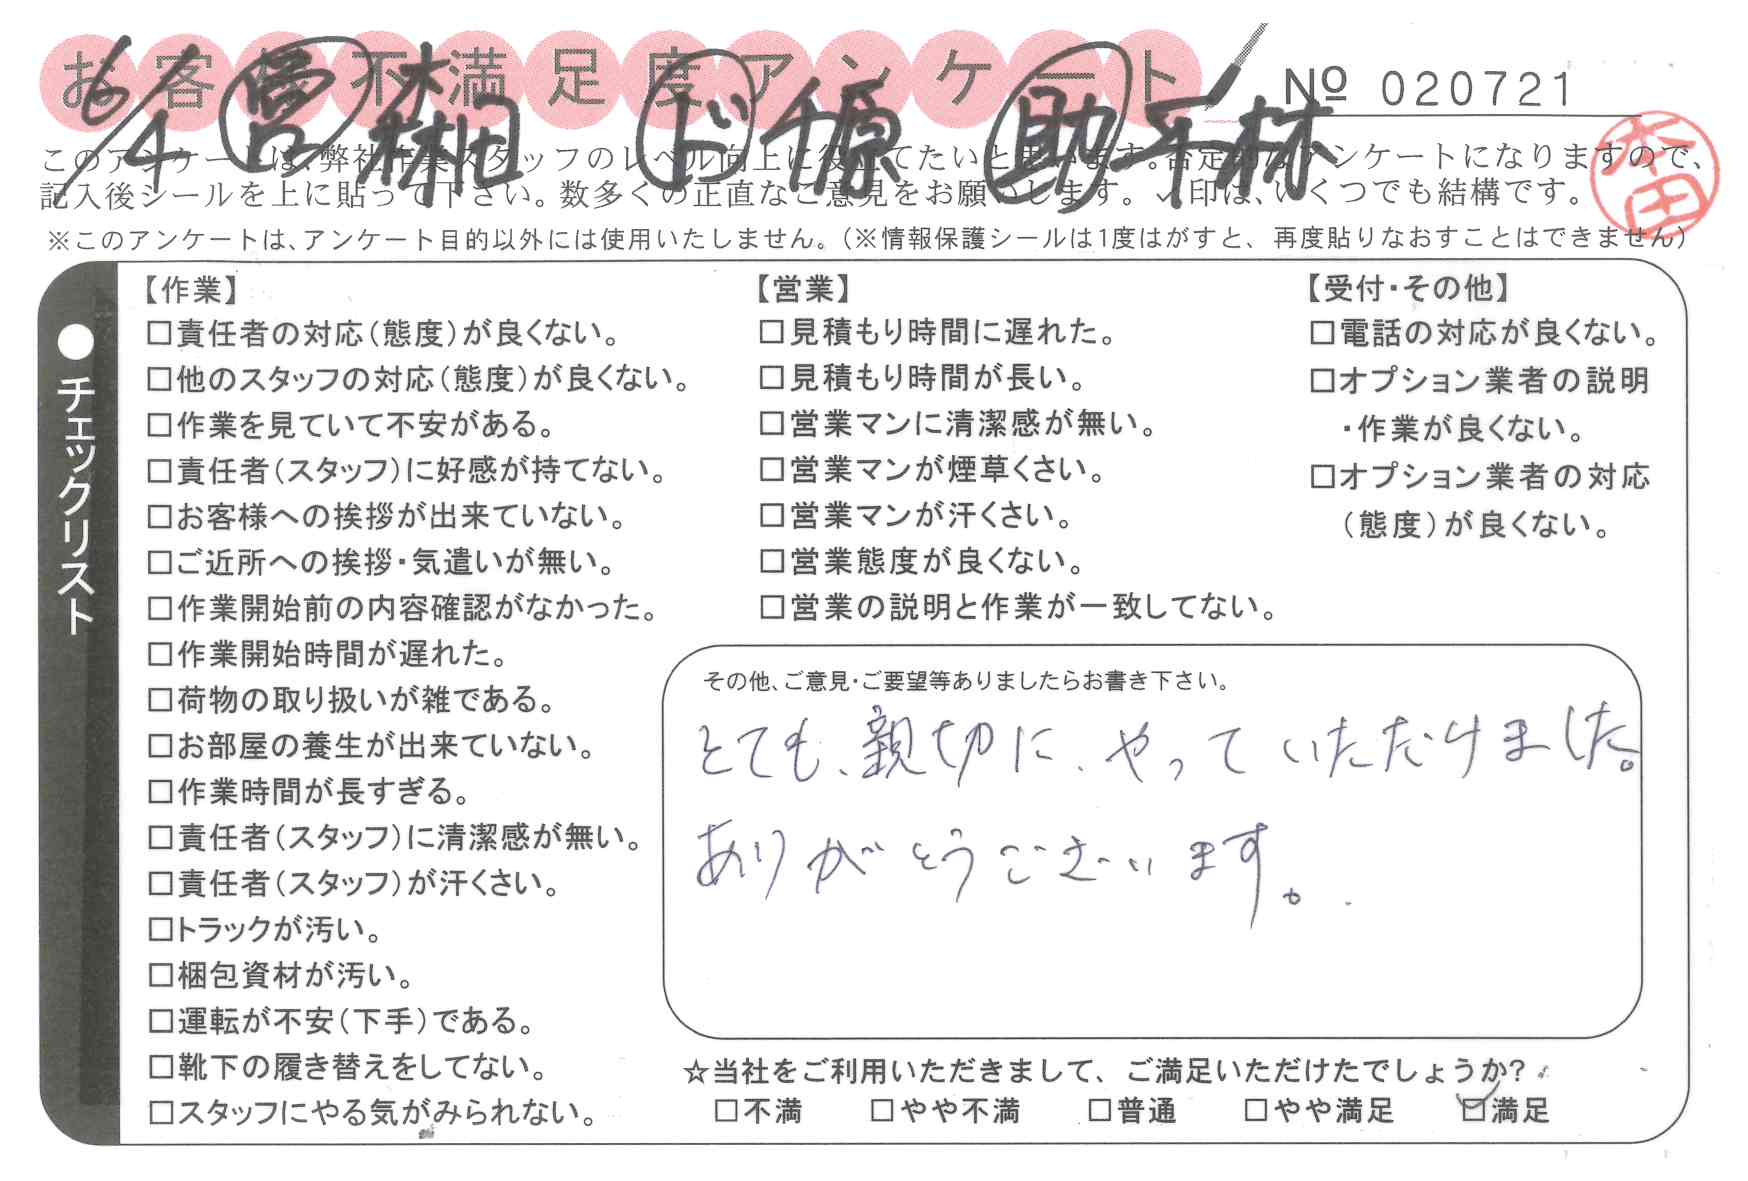 お客様不満足度アンケート
№ 020721
6/4 営 ド 助
このアンケートは、弊社作業スタッフのレベル向上に役立てたいと思います。否定的なアンケートになりますので、
記入後シールを上に貼って下さい。数多くの正直なご意見をお願いします。✓印は、いくつでも結構です。
※このアンケートは、アンケート目的以外には使用いたしません。(※情報保護シールは1度はがすと、再度貼りなおすことはできません)
●チェックリスト
【作業】
□責任者の対応(態度)が良くない。
□他のスタッフの対応(態度)が良くない。
□作業を見ていて不安がある。
□責任者(スタッフ)に好感が持てない。
□お客様への挨拶が出来ていない。
□ご近所への挨拶・気遣いが無い。
□作業開始前の内容確認がなかった。
□作業開始時間が遅れた。
□荷物の取り扱いが雑である。
□お部屋の養生が出来ていない。
□作業時間が長すぎる。
□責任者(スタッフ)に清潔感が無い。
□責任者(スタッフ)が汗くさい。
□トラックが汚い。
□梱包資材が汚い。
□運転が不安(下手)である。
□靴下の履き替えをしてない。
□スタッフにやる気がみられない。
【営業】
□見積もり時間に遅れた。
□見積もり時間が長い。
□営業マンに清潔感が無い。
□営業マンが煙草くさい。
□営業マンが汗くさい。
□営業態度が良くない。
□営業の説明と作業が一致してない。
【受付・その他】
□電話の対応が良くない。
□オプション業者の説明
・作業が良くない。
□オプション業者の対応
(態度)が良くない。
その他、ご意見・ご要望等ありましたらお書き下さい。
とても、親切に、やっていただけました。
ありがとうございます。
☆当社をご利用いただきまして、ご満足いただけたでしょうか?
□不満 □やや不満 □普通 □やや満足 ☑満足